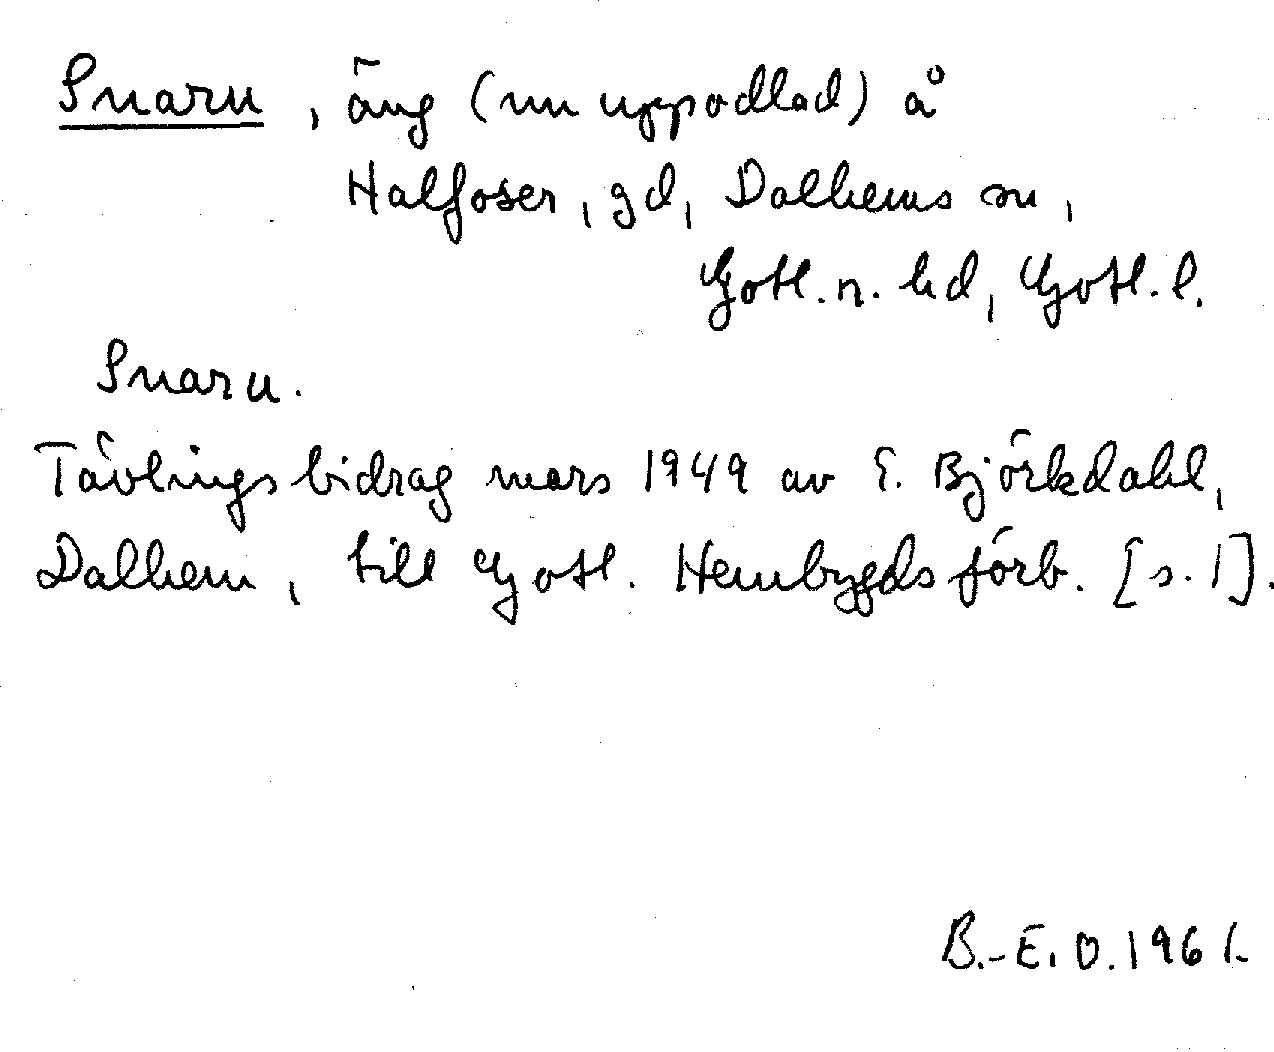 Snaru, äng (nu uppodlad) å
Halfoser, gd, Dalhems sn,
Gotl. n. hd, Gotl. l.
Snaru.
Tävlingsbidrag mars 1949 av E. Björkdahl,
Dalhem, till Gotl. Hembygdsförb. [s. 1].
B.-E. O. 1961.